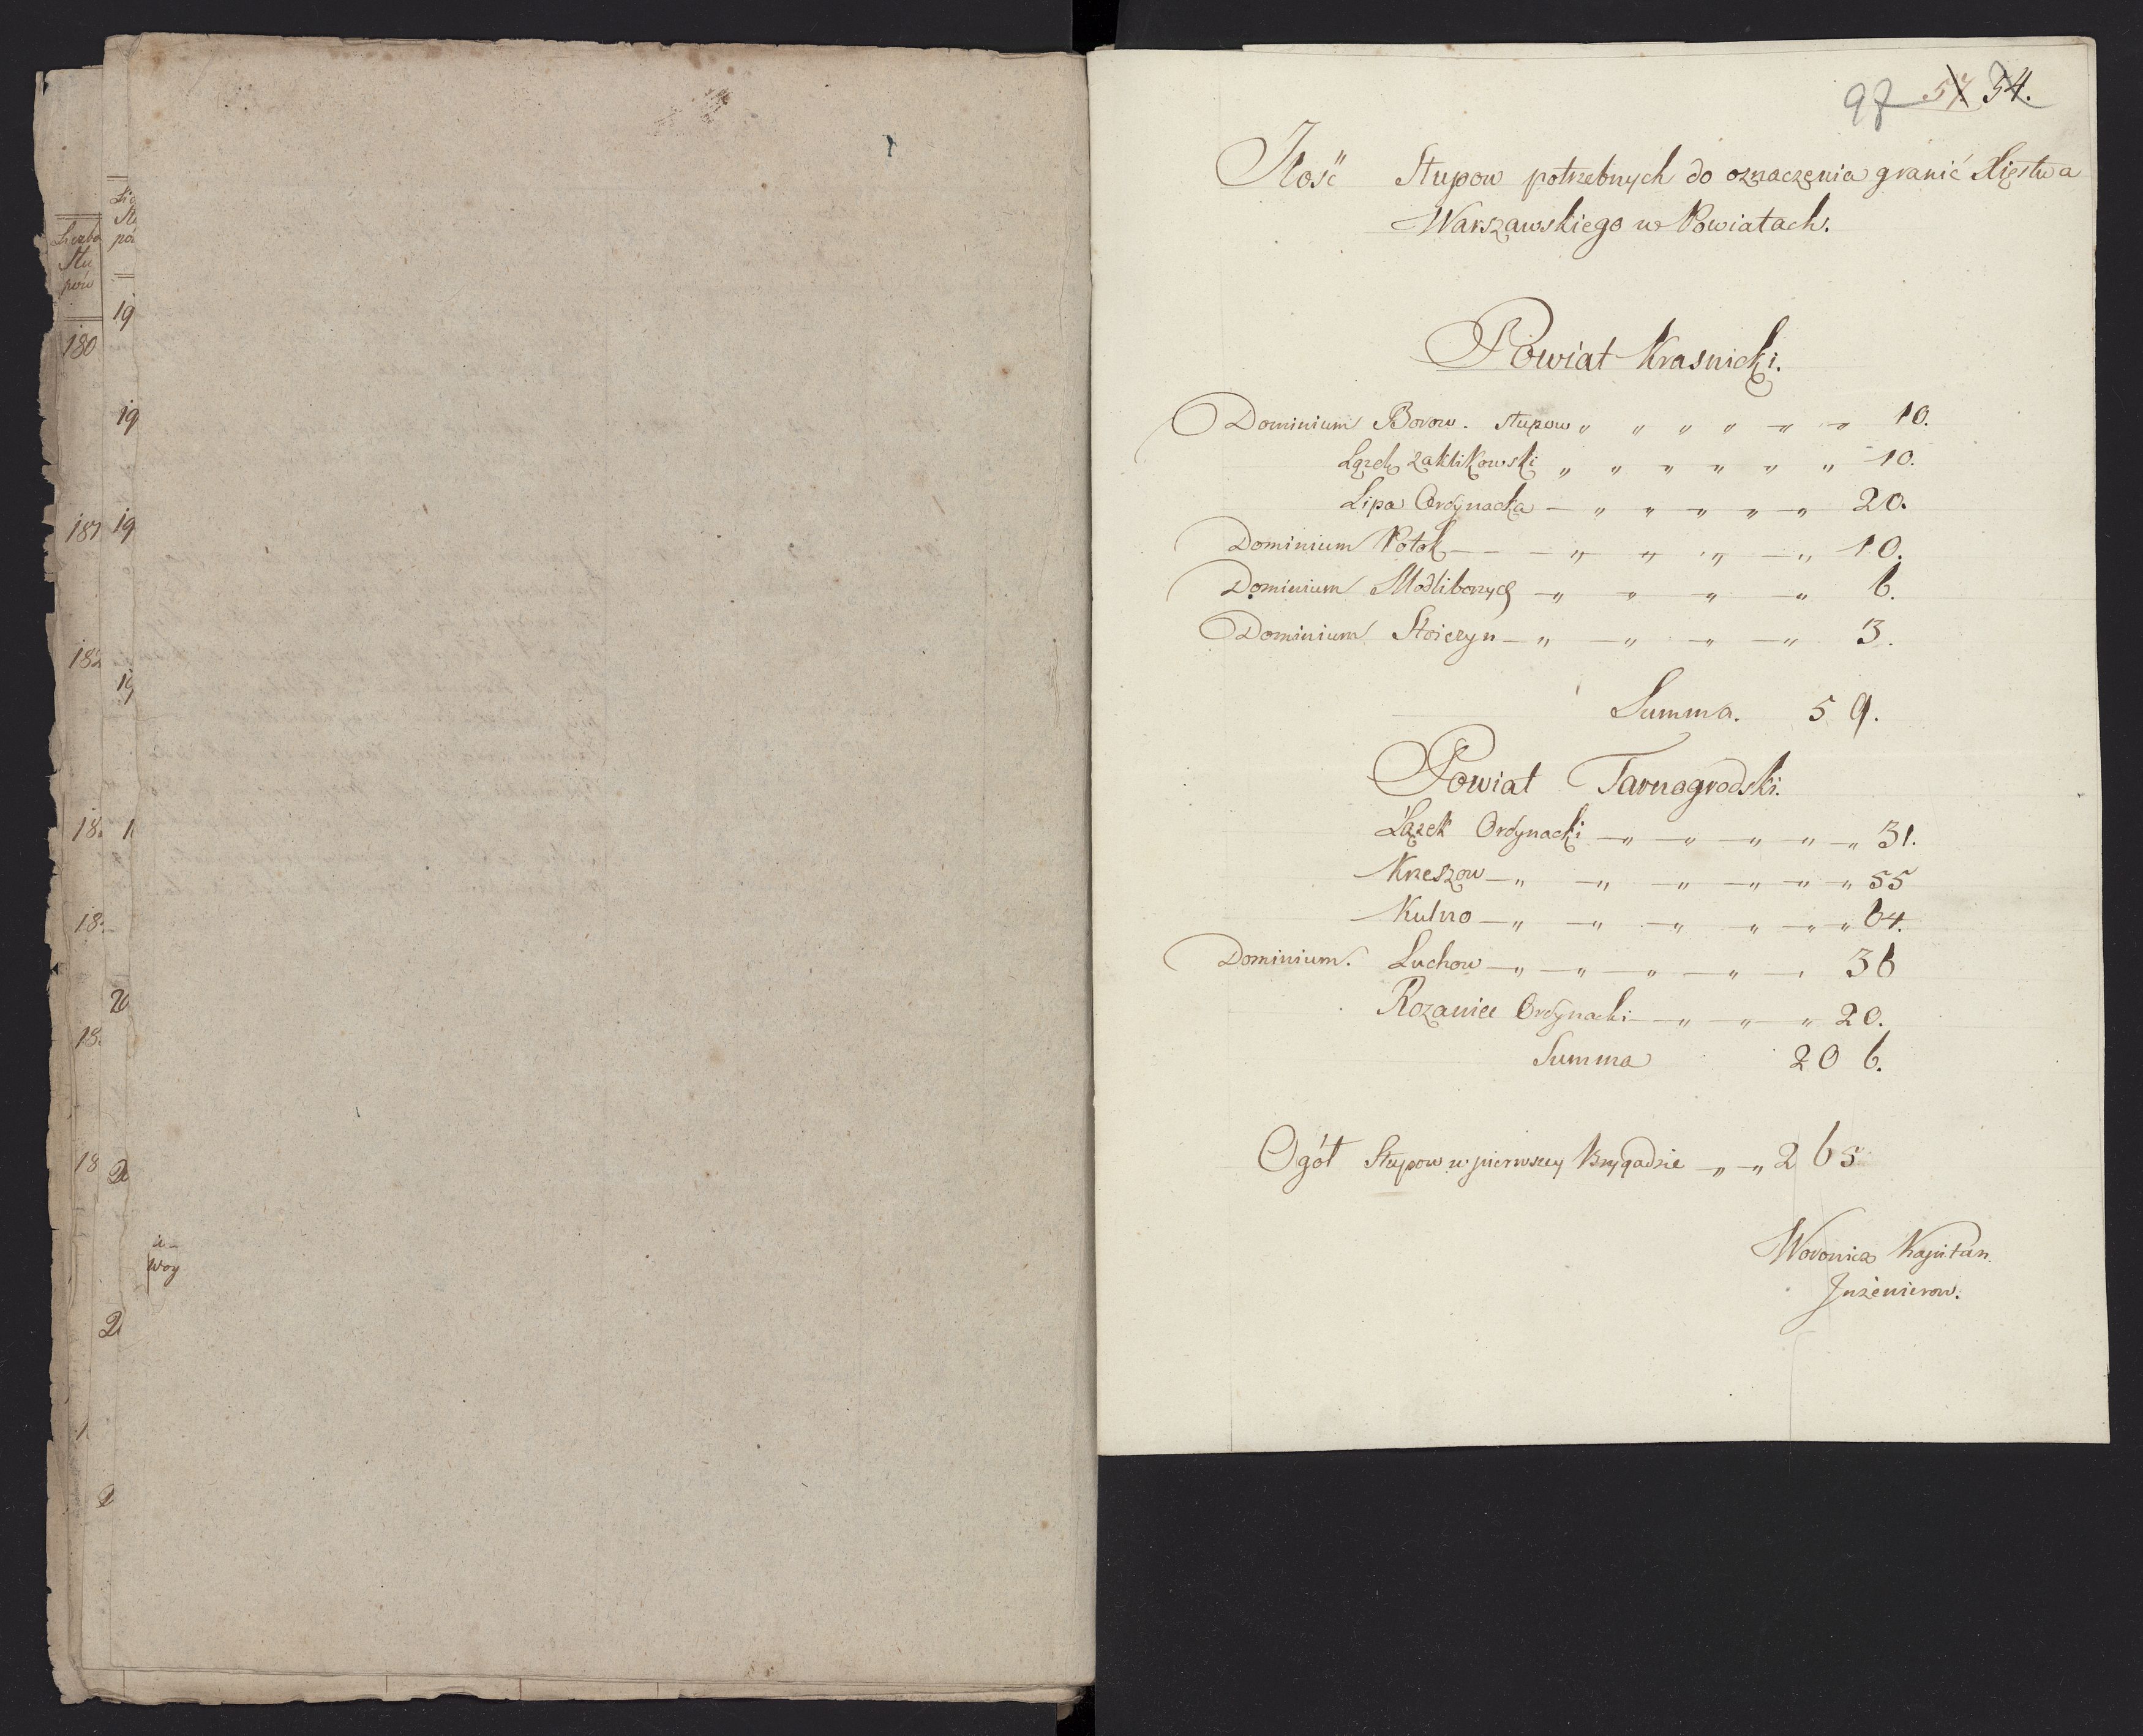 Liczba
Słu
pów
180
187
182
18
18
18
18
1
Słu
19
19
19
19
1
20
2
2
2
woy
97 57 34.
Ilość Słupow potrzebnych do oznaczenia granić Xięstwa
Warszawskiego w Powiatach.
Powiat Krasnicki.
Dominium Borow. słupow " " " " " " 10.
Lązek Zaklikowski " " " " " " 10.
Lipa Ordynacka — " " " " " 20.
Dominium Potok — — — " " " — " 10.
Dominium Modliborzyc — " " " — " 6.
Dominium Stoiczyn — " — " — " — " 3.
Summa. 59.
Powiat Tarnogrodski.
Łązek Ordynacki — " — " — " — " — " 31.
Krzeszow — " — " — " — " — " — " 55
Kulno — " — " — " " — " — " 64.
Dominium. Luchow — " — " — " — " — " 36
Rozaniec Ordynacki — " — " — " 20.
Summa 206.
Ogół Słupow w pierwszey Brygadzie — " — " 265
Woronicz Kapitan
Inzenierow.